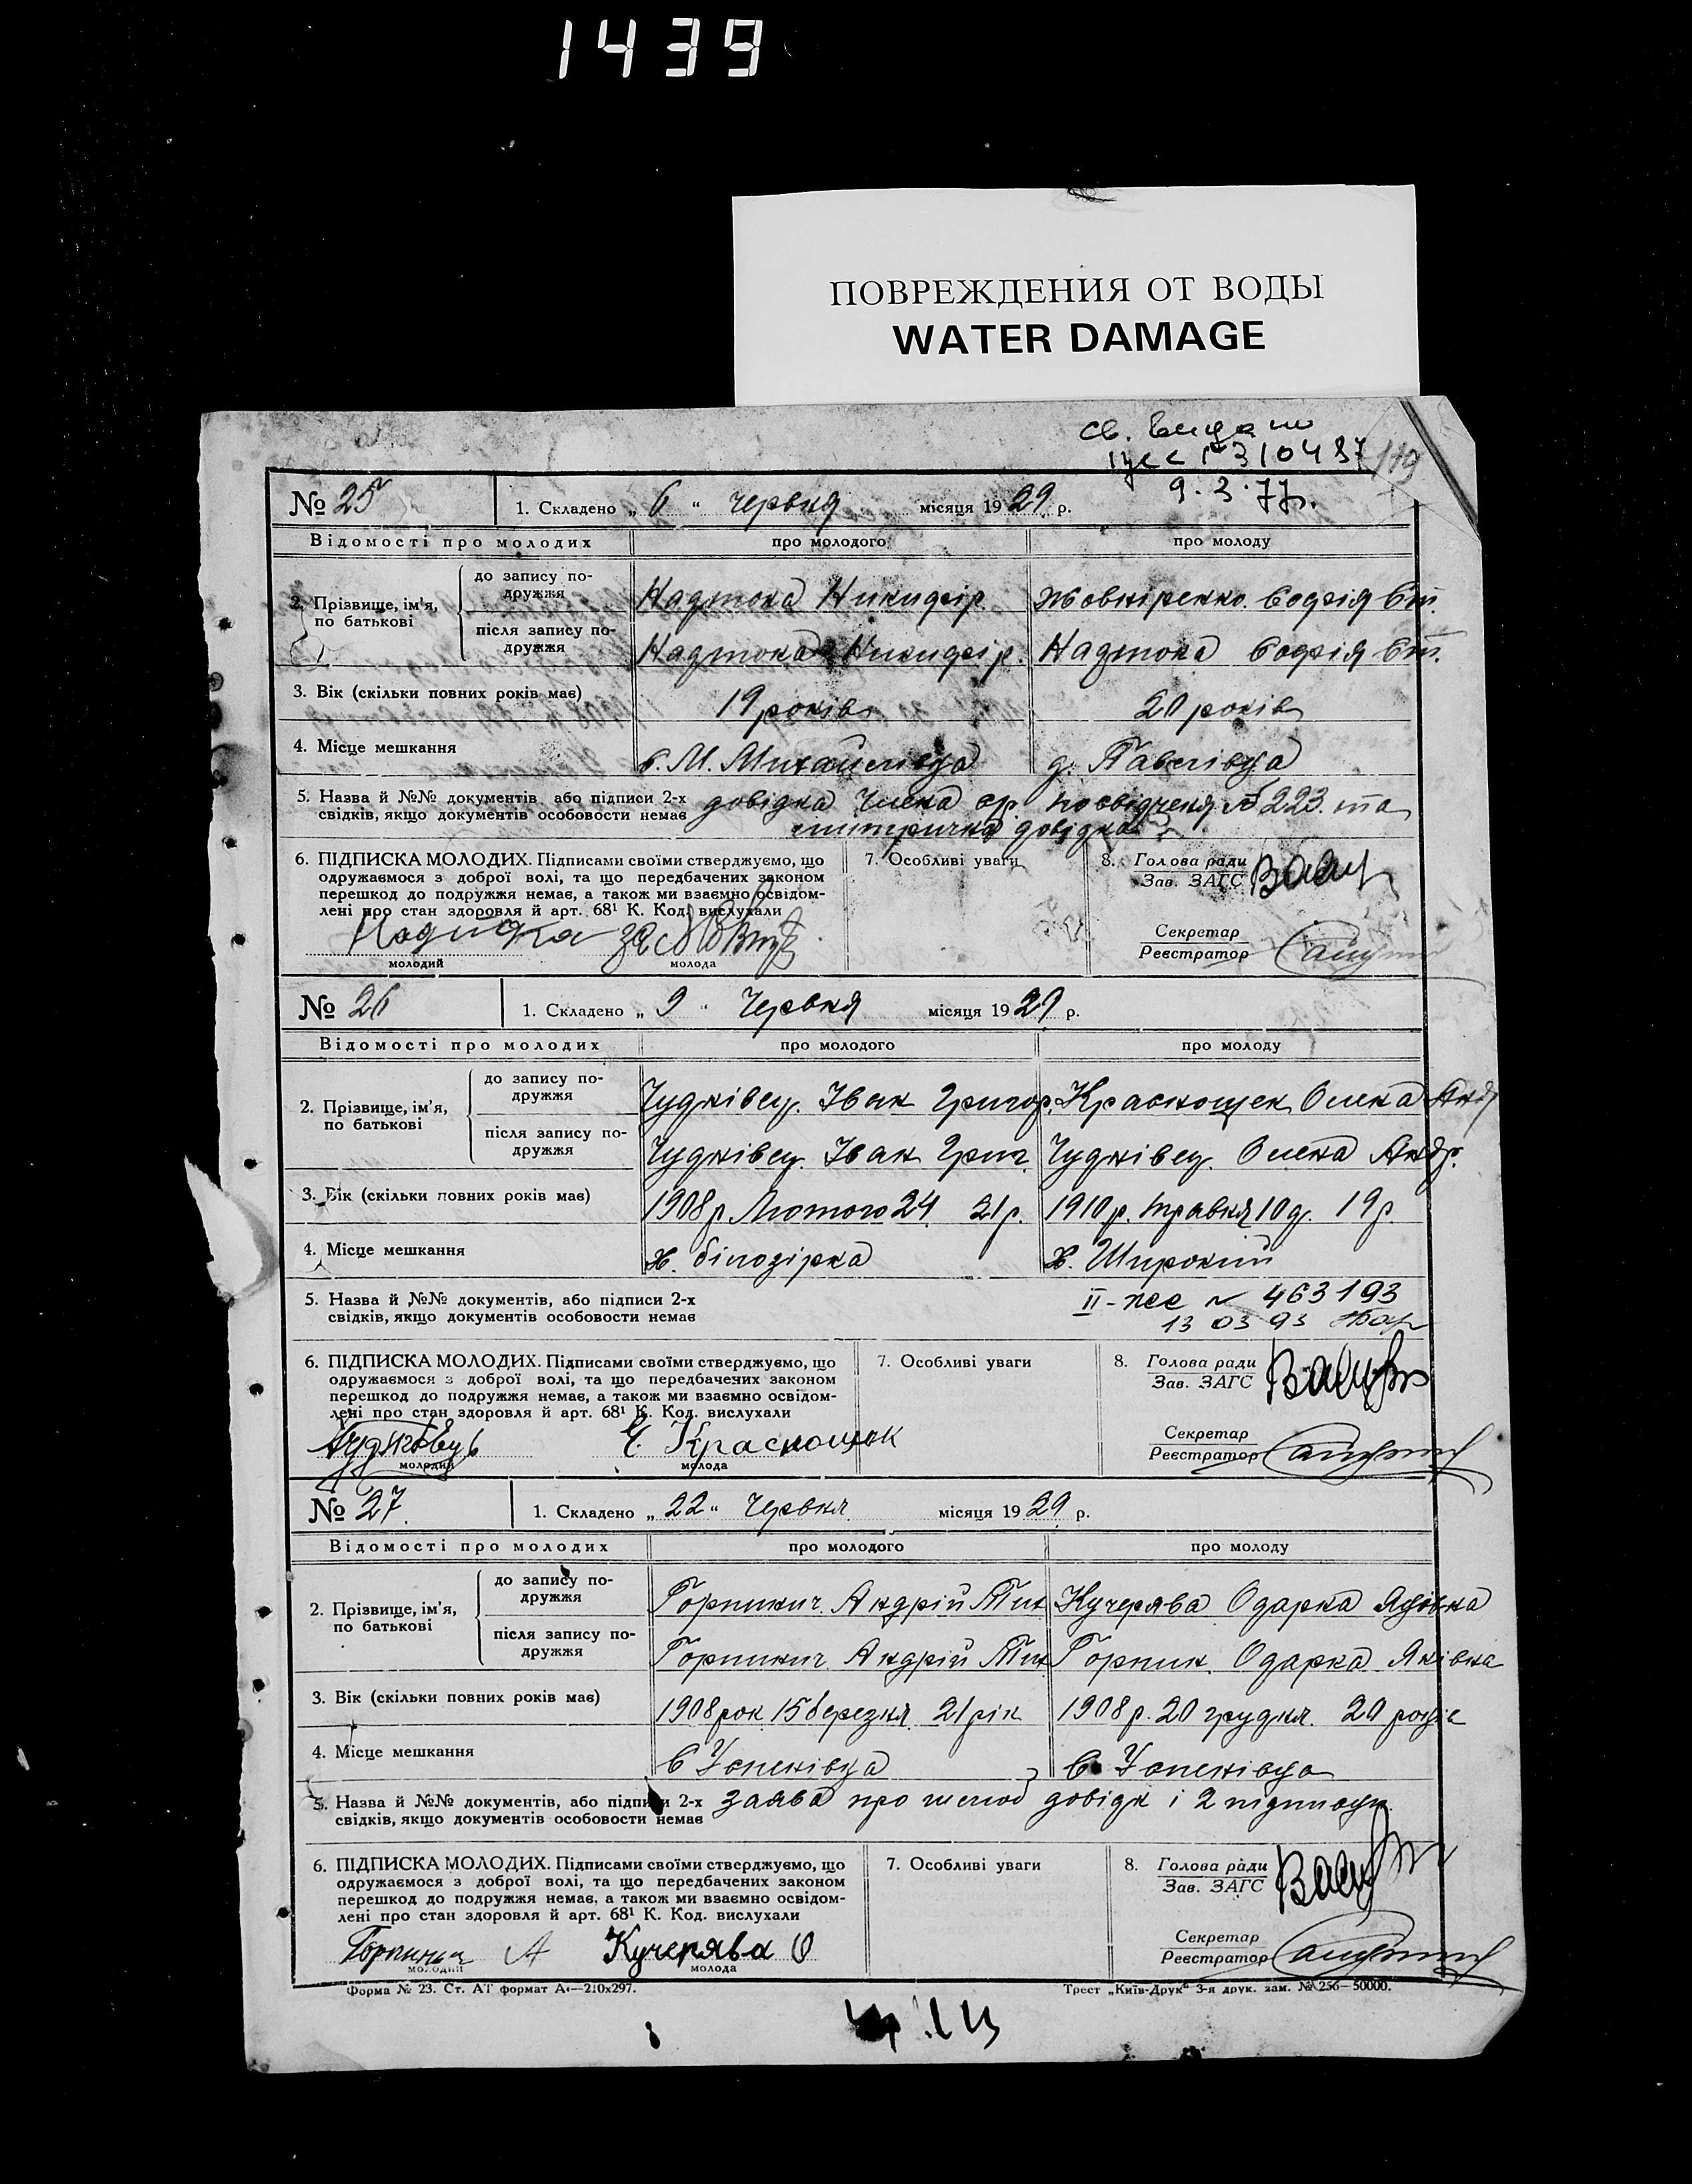 1439
ПОВРЕЖДЕНИЯ ОТ ВОДЫ
WATER DAMAGE
св. видано
9.3.77р.
№ 25 1. Складено „ 6 “ червня місяця 1929 р.
Відомості про молодих про молодого про молоду
2. Прізвище, ім'я, по батькові
до запису по-
дружжя
Надтока Никифір Жовніренко Софія
після запису по-
дружжя
Надтока Никифір. Надтока Софія
3. Вік (скільки повних років має) 19 років 20 років
4. Місце мешкання с. М. Михайлівка д. Павлівка
5. Назва й №№ документів або підписи 2-х
свідків, якщо документів особовости немає
довідка посвідченя № 223 та
довідка
6. ПІДПИСКА МОЛОДИХ. Підписами своїми стверджуємо, що
одружаємося з доброї волі, та що передбачених законом
перешкод до подружжя немає, а також ми взаємно освідом-
лені про стан здоровля й арт. 68¹ К. Код. вислухали
молодий молода
7. Особливі уваги
8. Голова ради
Зав. ЗАГС
Секретар
Реєстратор
№ 26 1. Складено „ 9 “ Червня місяця 1929 р.
Відомості про молодих про молодого про молоду
2. Прізвище, ім'я,
по батькові
до запису по-
дружжя
Чуднівець Іван Григор. Краснощек Олена Андр
після запису по-
дружжя
Чуднівець Іван Григ. Чуднівець Олена Андр.
3. Вік (скільки повних років має) 1908р Лютого 24 21 р. 1910 р. травня 10 д. 19 р.
4. Місце мешкання х. Білозірка х. Широкий
5. Назва й №№ документів, або підписи 2-х
свідків, якщо документів особовости немає
№ 463193
13 03 93
6. ПІДПИСКА МОЛОДИХ. Підписами своїми стверджуємо, що
одружаємося з доброї волі, та що передбачених законом
перешкод до подружжя немає, а також ми взаємно освідом-
лені про стан здоровля й арт. 68¹ К. Код. вислухали
Краснощок
молодий молода
7. Особливі уваги
8. Голова ради
Зав. ЗАГС
Секретар
Реєстратор
№ 27. 1. Складено „ 22 “ Червня місяця 1929 р.
Відомості про молодих про молодого про молоду
2. Прізвище, ім'я,
по батькові
до запису по-
дружжя
Горпинич Андрій Тих Кучерява Одарка Яківна
після запису по-
дружжя
Горпинич Андрій Тих Горпин. Одарка Яківна
3. Вік (скільки повних років має) 1908 рок 15 березня 21 рік 1908 р. 20 грудня. 20 років
4. Місце мешкання с Успенівка с. Успенівка
5. Назва й №№ документів, або підписи 2-х
свідків, якщо документів особовости немає
заява про шлюб довідк і 2 підписи
6. ПІДПИСКА МОЛОДИХ. Підписами своїми стверджуємо, що
одружаємося з доброї волі, та що передбачених законом
перешкод до подружжя немає, а також ми взаємно освідом-
лені про стан здоровля й арт. 68¹ К. Код. вислухали
Горпинич А Кучерява О
молодий молода
7. Особливі уваги
8. Голова ради
Зав. ЗАГС
Секретар
Реєстратор
Форма № 23. Ст. АТ формат А4—210х297. Трест „Київ-Друк“ 3-я друк. зам. № 256—50000.